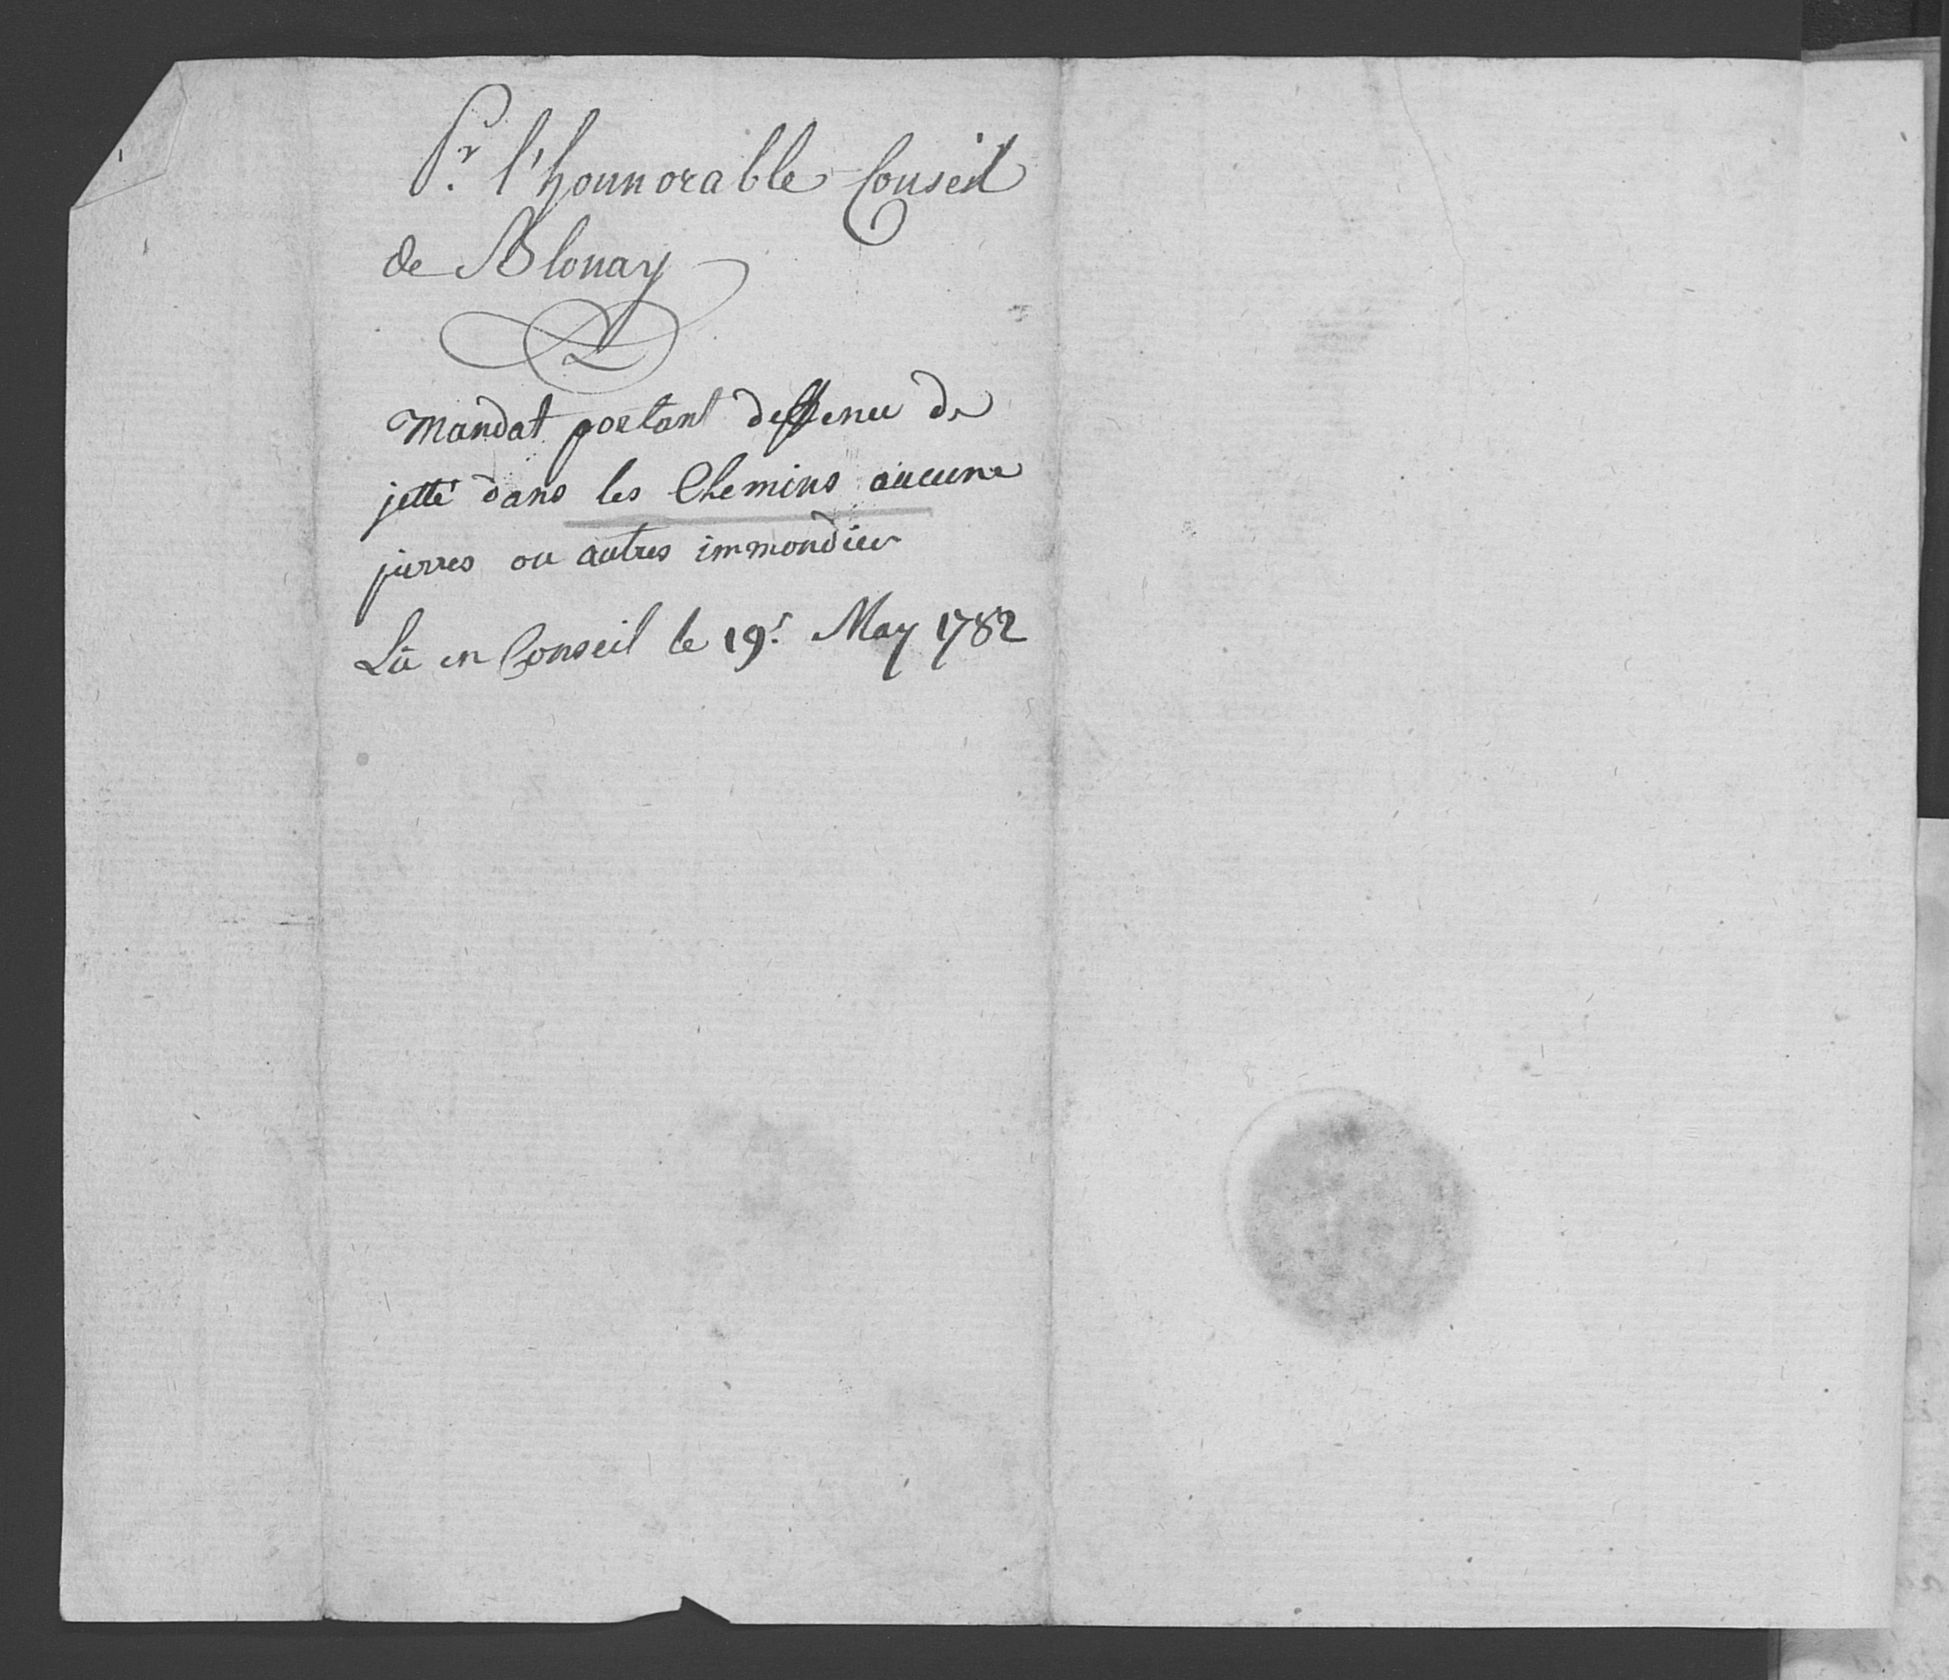 Pr. l'honnorable Conseil
de Blonay
Mandat portant deffence de
jetté dans les Chemins aucune
pierres ou autres immondices
Lû en Conseil le 19e. May 1782